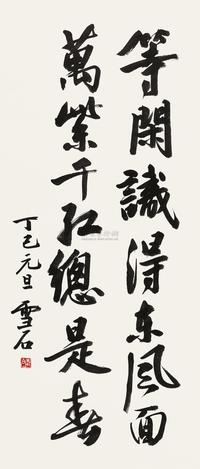 等閑識得东风面
萬紫千红總是春
丁巳元旦 雪石